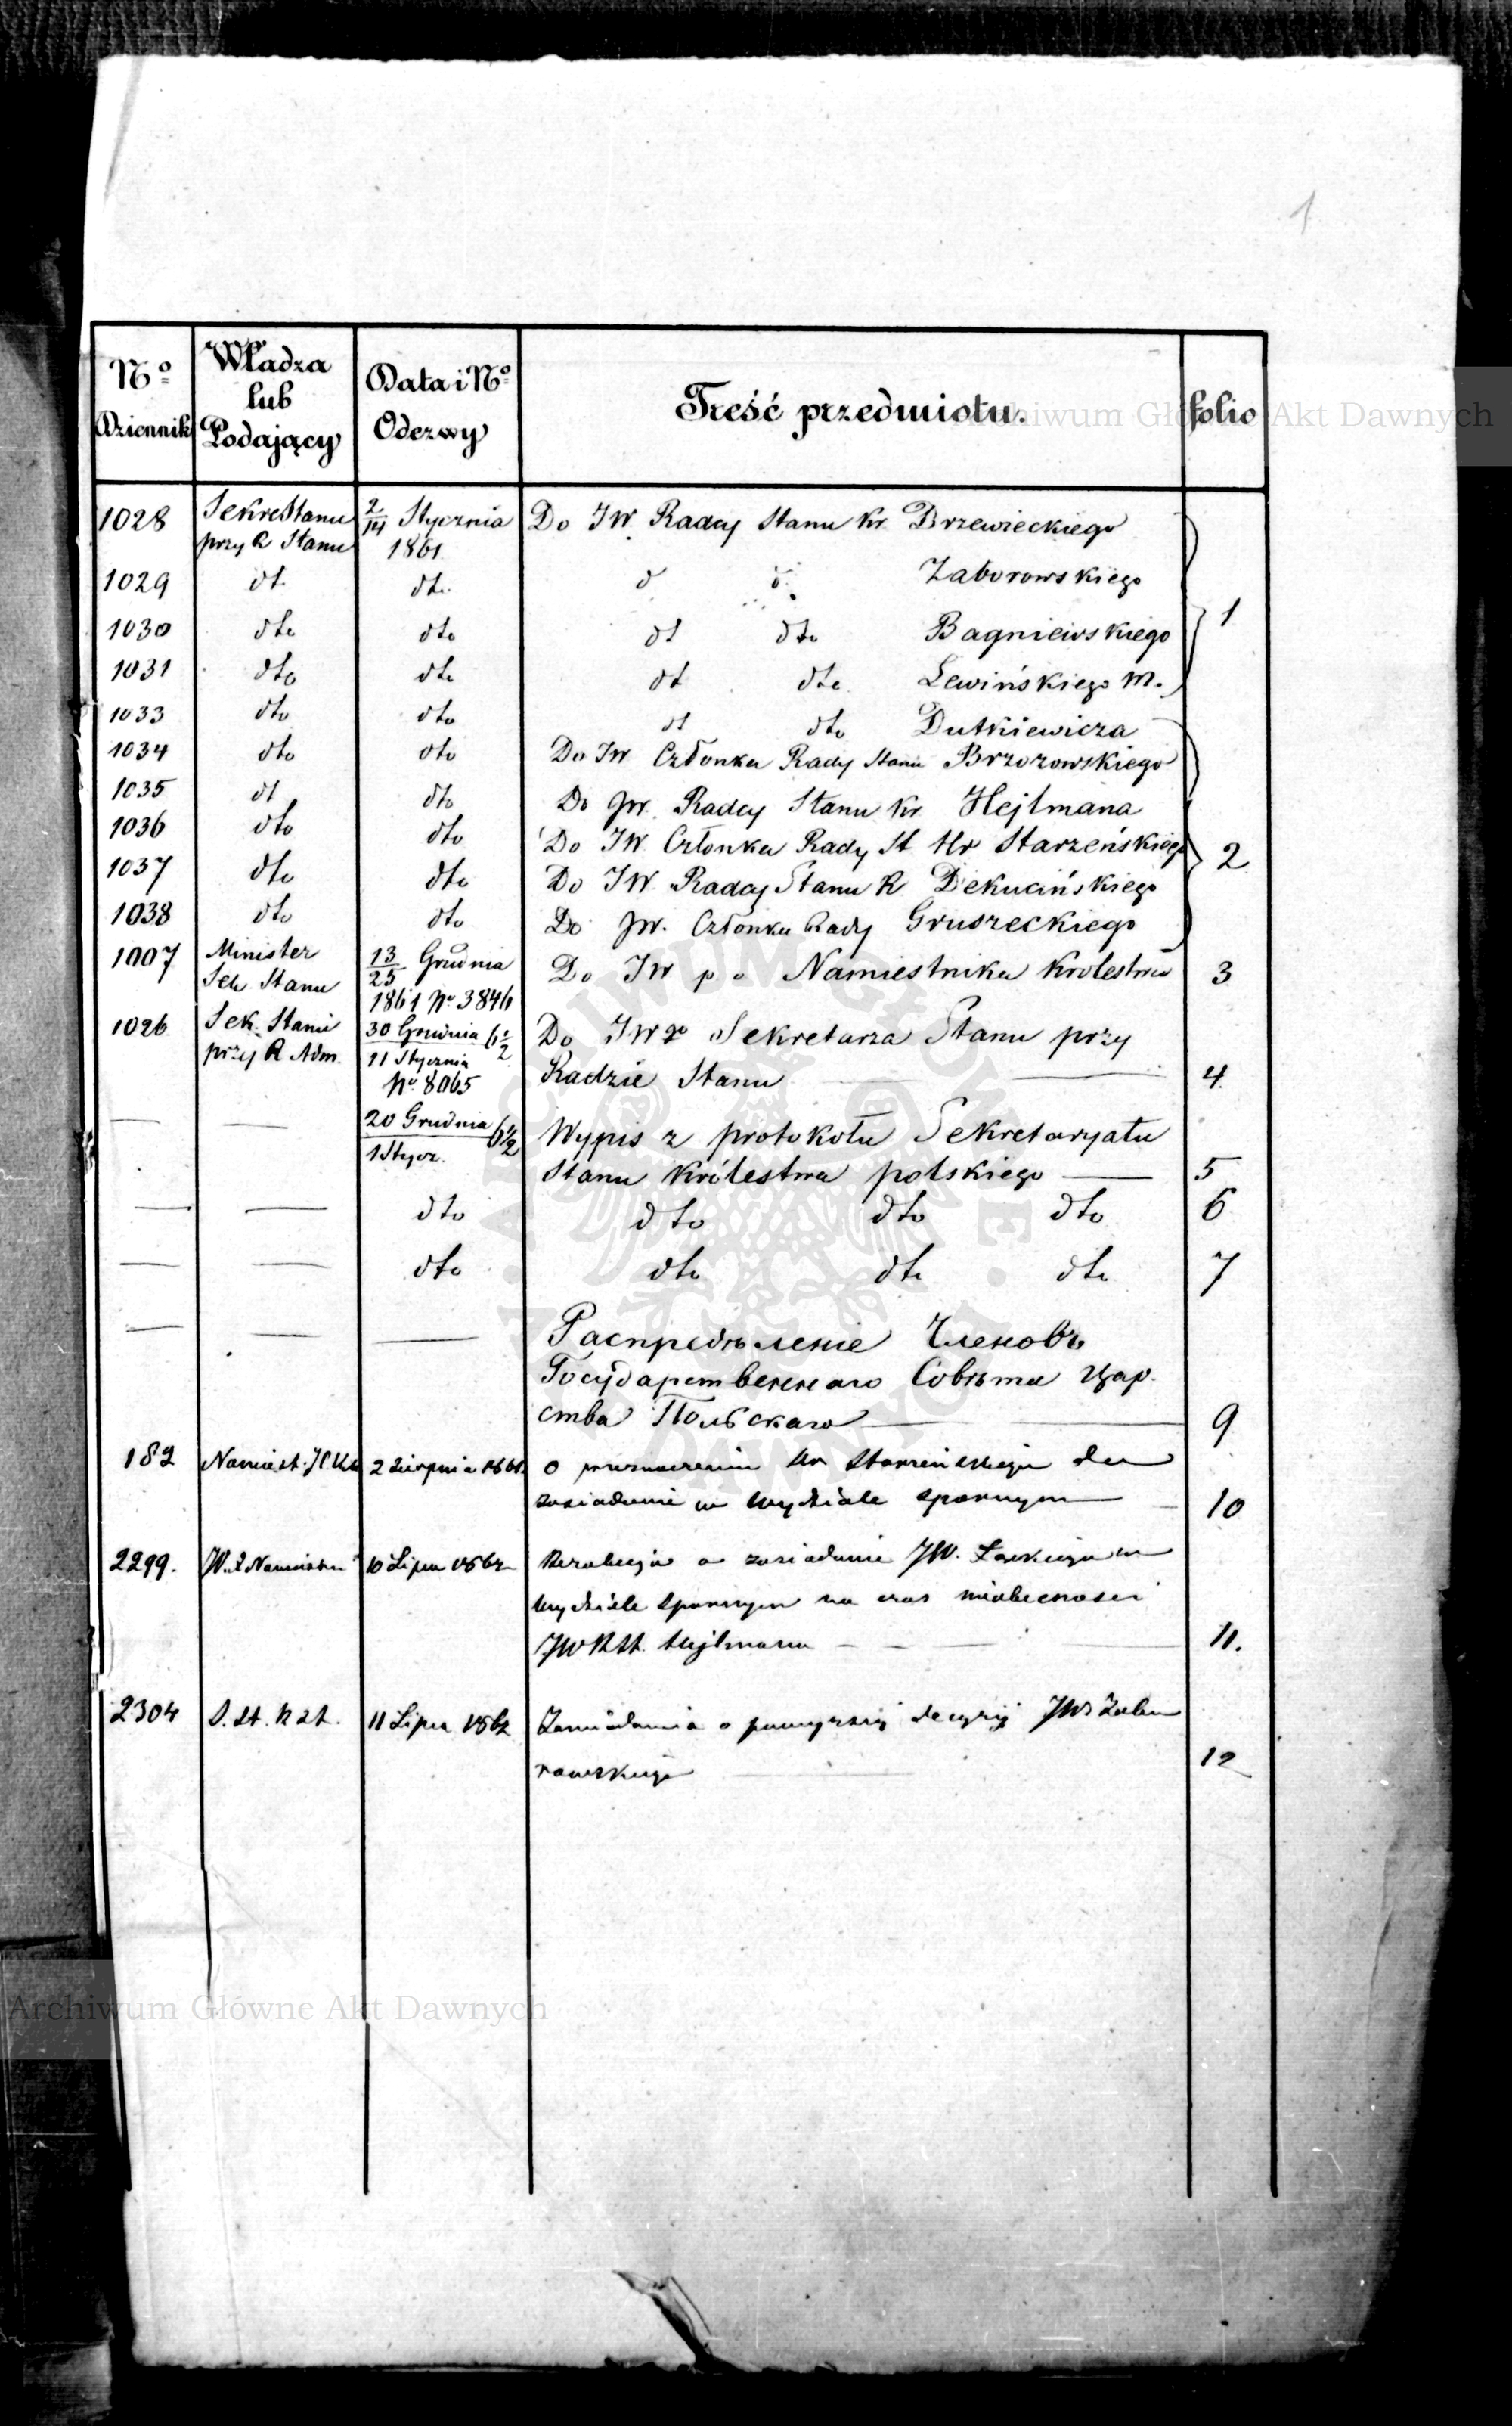 1
No Dziennik
Władza lub Podający
Data i No Odezwy
Treść przedmiotu.
folio
1028 Sekre Stanu przy R Stanu 2/14 Stycznia 1861 Do JW. Radcy Stanu Kr Brzewieckiego
1029 dt. dto. d d. Zaborowskiego
1030 dto dto dt dto Bagniewskiego 1
1031 dto dto dt dto Lewińskiego M.
1033 dto dto dt dto Dutkiewicza
1034 dto dto Do JW Członka Rady Stanu Brzozowskiego
1035 dt dto Do JW. Radcy Stanu Kr Hejlmana
1036 dto dto Do JW Członka Rady St Hr Starzeńskiego 2
1037 dto dto Do JW. Radcy Stanu R Dekucińskiego
1038 dto dto Do JW. Członka Rady Gruszeckiego
1007 Minister Sek Stanu 13/25 Grudnia 1861 No 3846 Do JW p o Namiestnika Krolestwa 3
1026 Sek. Stanu przy R Adm. 30 Grudnia/11 Stycznia 61/2 No 8065 Do JWo Sekretarza Stanu przy
Radzie Stanu 4
20 Grudnia/1 Stycz. 61/2 Wypis z protokołu Sekretaryatu
Stanu Królestwa polskiego 5
dto dto dto dto 6
dto dto dto dto 7
Распредѣленіе Членовъ
Государственнаго Совѣта Цар-
ства Польскаго 9
182 Namiest. 2 Sierpnia 1861. O przeznaczeniu Hr Starzeńskiego do
zasiadania w Wydziale spornym 10
2299. 10 Lipca 1862 Rezolucja o zasiadanie JW. Łaskiego w
Wydziale spornym na czas nieobecności
JW RSt. Hejlmana 11.
2304 S. St. R St. 11 Lipca 1862 Zawiadomienie o powyższej decyzji JW Zabo
rowskiego 12
Archiwum Główne Akt Dawnych
Archiwum Główne Akt Dawnych